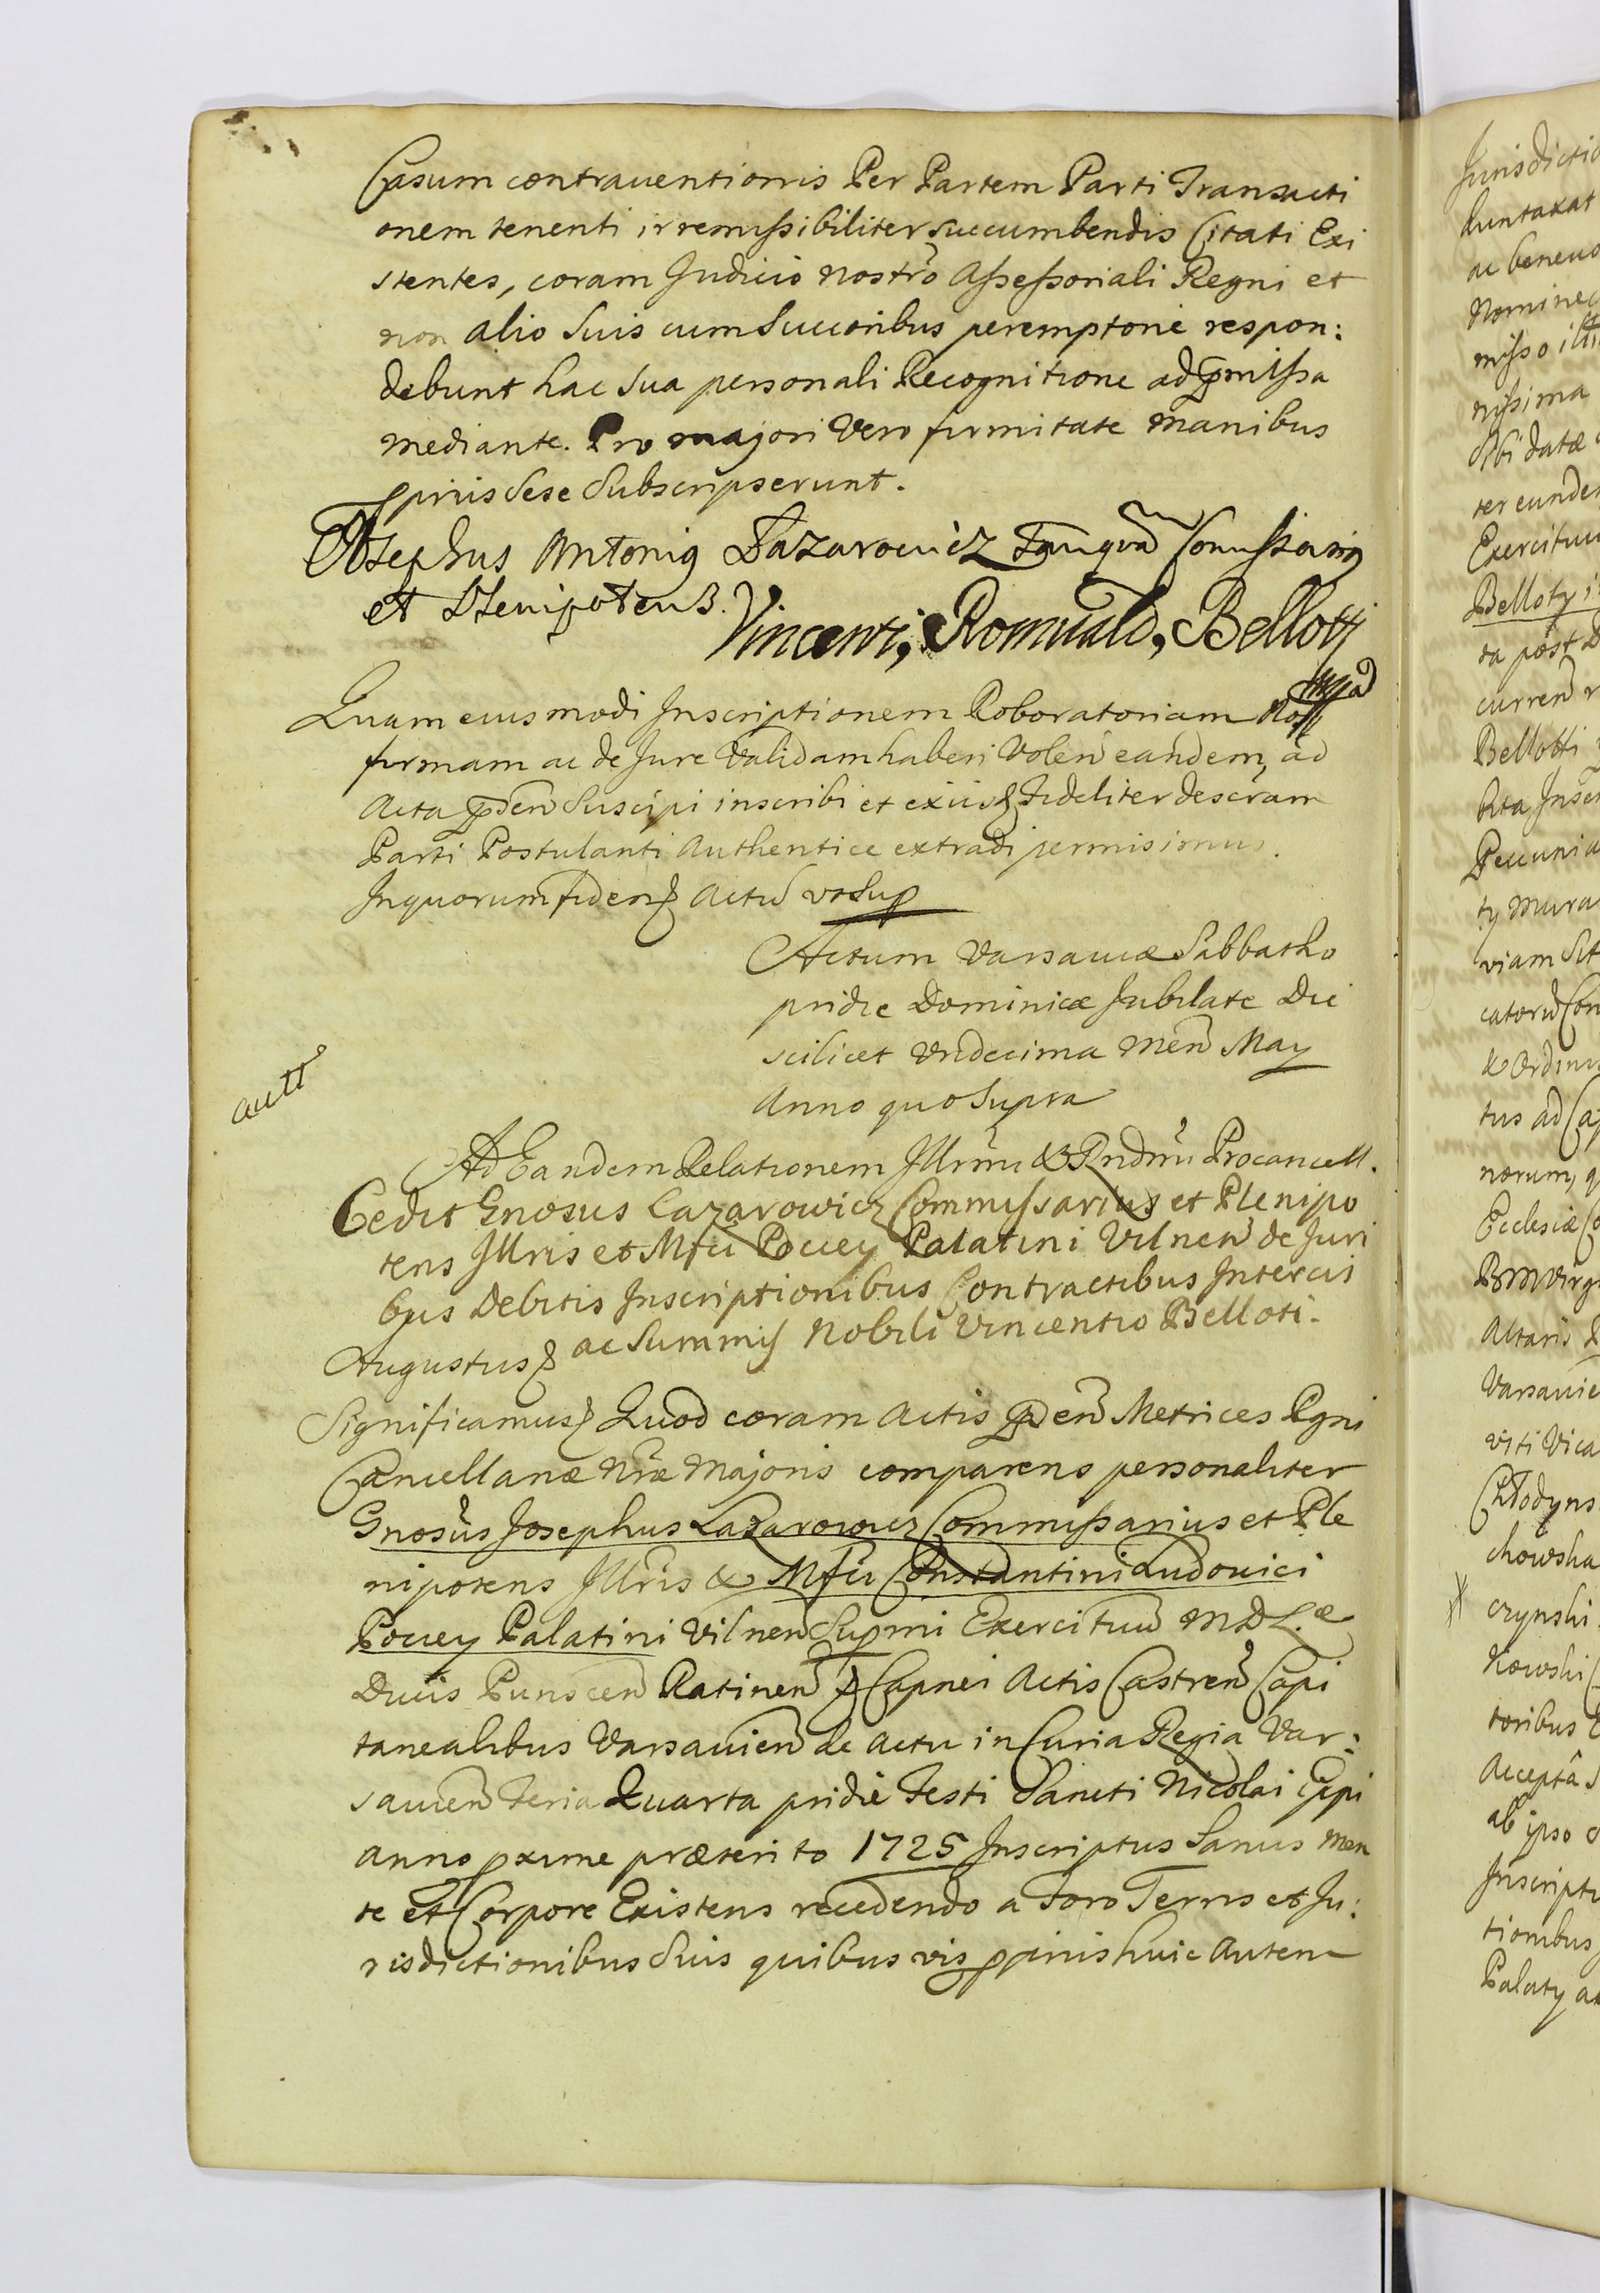 Casum contrauentionis Per Partem Parti Transacti
onem tenenti irremissibiliter succumbendis Citati Exi
stentes, coram Judicio nostro Assessoriali Regni et
non alio Suis cum Succoribus peremptorie respon:
debunt hac sua personali Recognitione ad pmissa
mediante. Pro majori Vero firmitate manibus
ppriis Sese Subscripserunt.
Josephus Antonig Lazarowicz tanqua Comissarig
et Plenipotens.
Vincenti, Romuald, Bellotti
mpa
Quam eiusmodi Inscriptionem Roboratoriam
firmam ac de Jure Validam haberi Volen eandem, ad
Acta pden Suscipi inscribi et exiis Fideliter descram
Parti Postulanti Authentice extradi permisimus.
In quorum fidem Actu vt Sup
Actum Varsauiæ Sabbatho
pridie Dominicæ Jubilate Die
scilicet Vndecima Men May
Anno quo Supra
autt
Ad Eandem Relationem Illrmi & Rndmi Procancell.
Cedit Gnosus Lazarowicz Commissarius et Plenipo
tens Illris et Mfci Pociey Palatini Vilnen de Juri
bus Debitis Inscriptionibus Contractibus Intercis
ac Summis Nobili Vincentio Belloti.
Augustus
Significamus Quod coram Actis pden Metrices Rgni
Cancellariæ Nræ Majoris comparens personaliter
Gnosus Josephus Lazarowicz Commissarius et Ple
nipotens Illris & Mfci Constantini Ludouici
Pociey Palatini Vilnen Supmi Exercituu M D L.æ
Ducis Punscen Ratinen Capnei Actis Castren Capi
tanealibus Varsauien de Actu in Curia Regia Var:
sauien Feria Quarta pridie Festi Sancti Nicolai Eppi
anno pxime præterito 1725 Inscriptus Sanus Men
te Et Corpore Existens recedendo a Foro Terris et Ju:
risdictionibus Suis quibus vis ppriis huic Autem
Jurisdictio
duntaxat
ac beneuo
Nomine
misso
nissima
Sibi datæ
ter eunde
Exercituu
Belloty
ta post
curren
Bellotti
bita Inscr
Pecunia
ty Mura
viam Sit
catoru Con
& Ordinis
tus ad Cap
norum, q
Ecclesiæ Co
BMVirg
Altaris
Varsauie
viti Vica
Chłodyns
chowska
czynski
kowski
toribus
Acceptâ
ab ipso
Inscripti
tionibus
Palaty